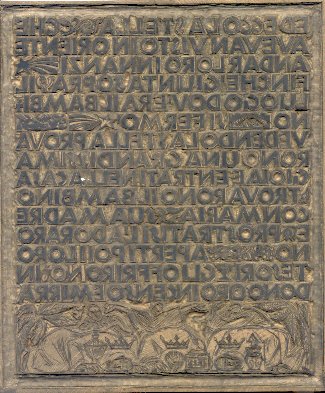 ED ECCO LA STELLA CHE
AVEVAN VISTO IN ORIENTE
ANDAR LORO INNANZI
FINCHE GIUNTA SOPRA IL
LUOGO DOV'ERA IL BAMBI
NO SI FERMO
VEDENDO LA STELLA PROVA
RONO UNA GRANDISSIMA
GIOIA ENTRATI NELLA CASA
TROVARONO IL BAMBINO
CON MARIA SUA MADRE
E PROSTRATISI LO ADORARO
NO APERTI POI I LORO
TESORI GLI OFFRIRONO IN
DONO ORO INCENSO E MIRRA